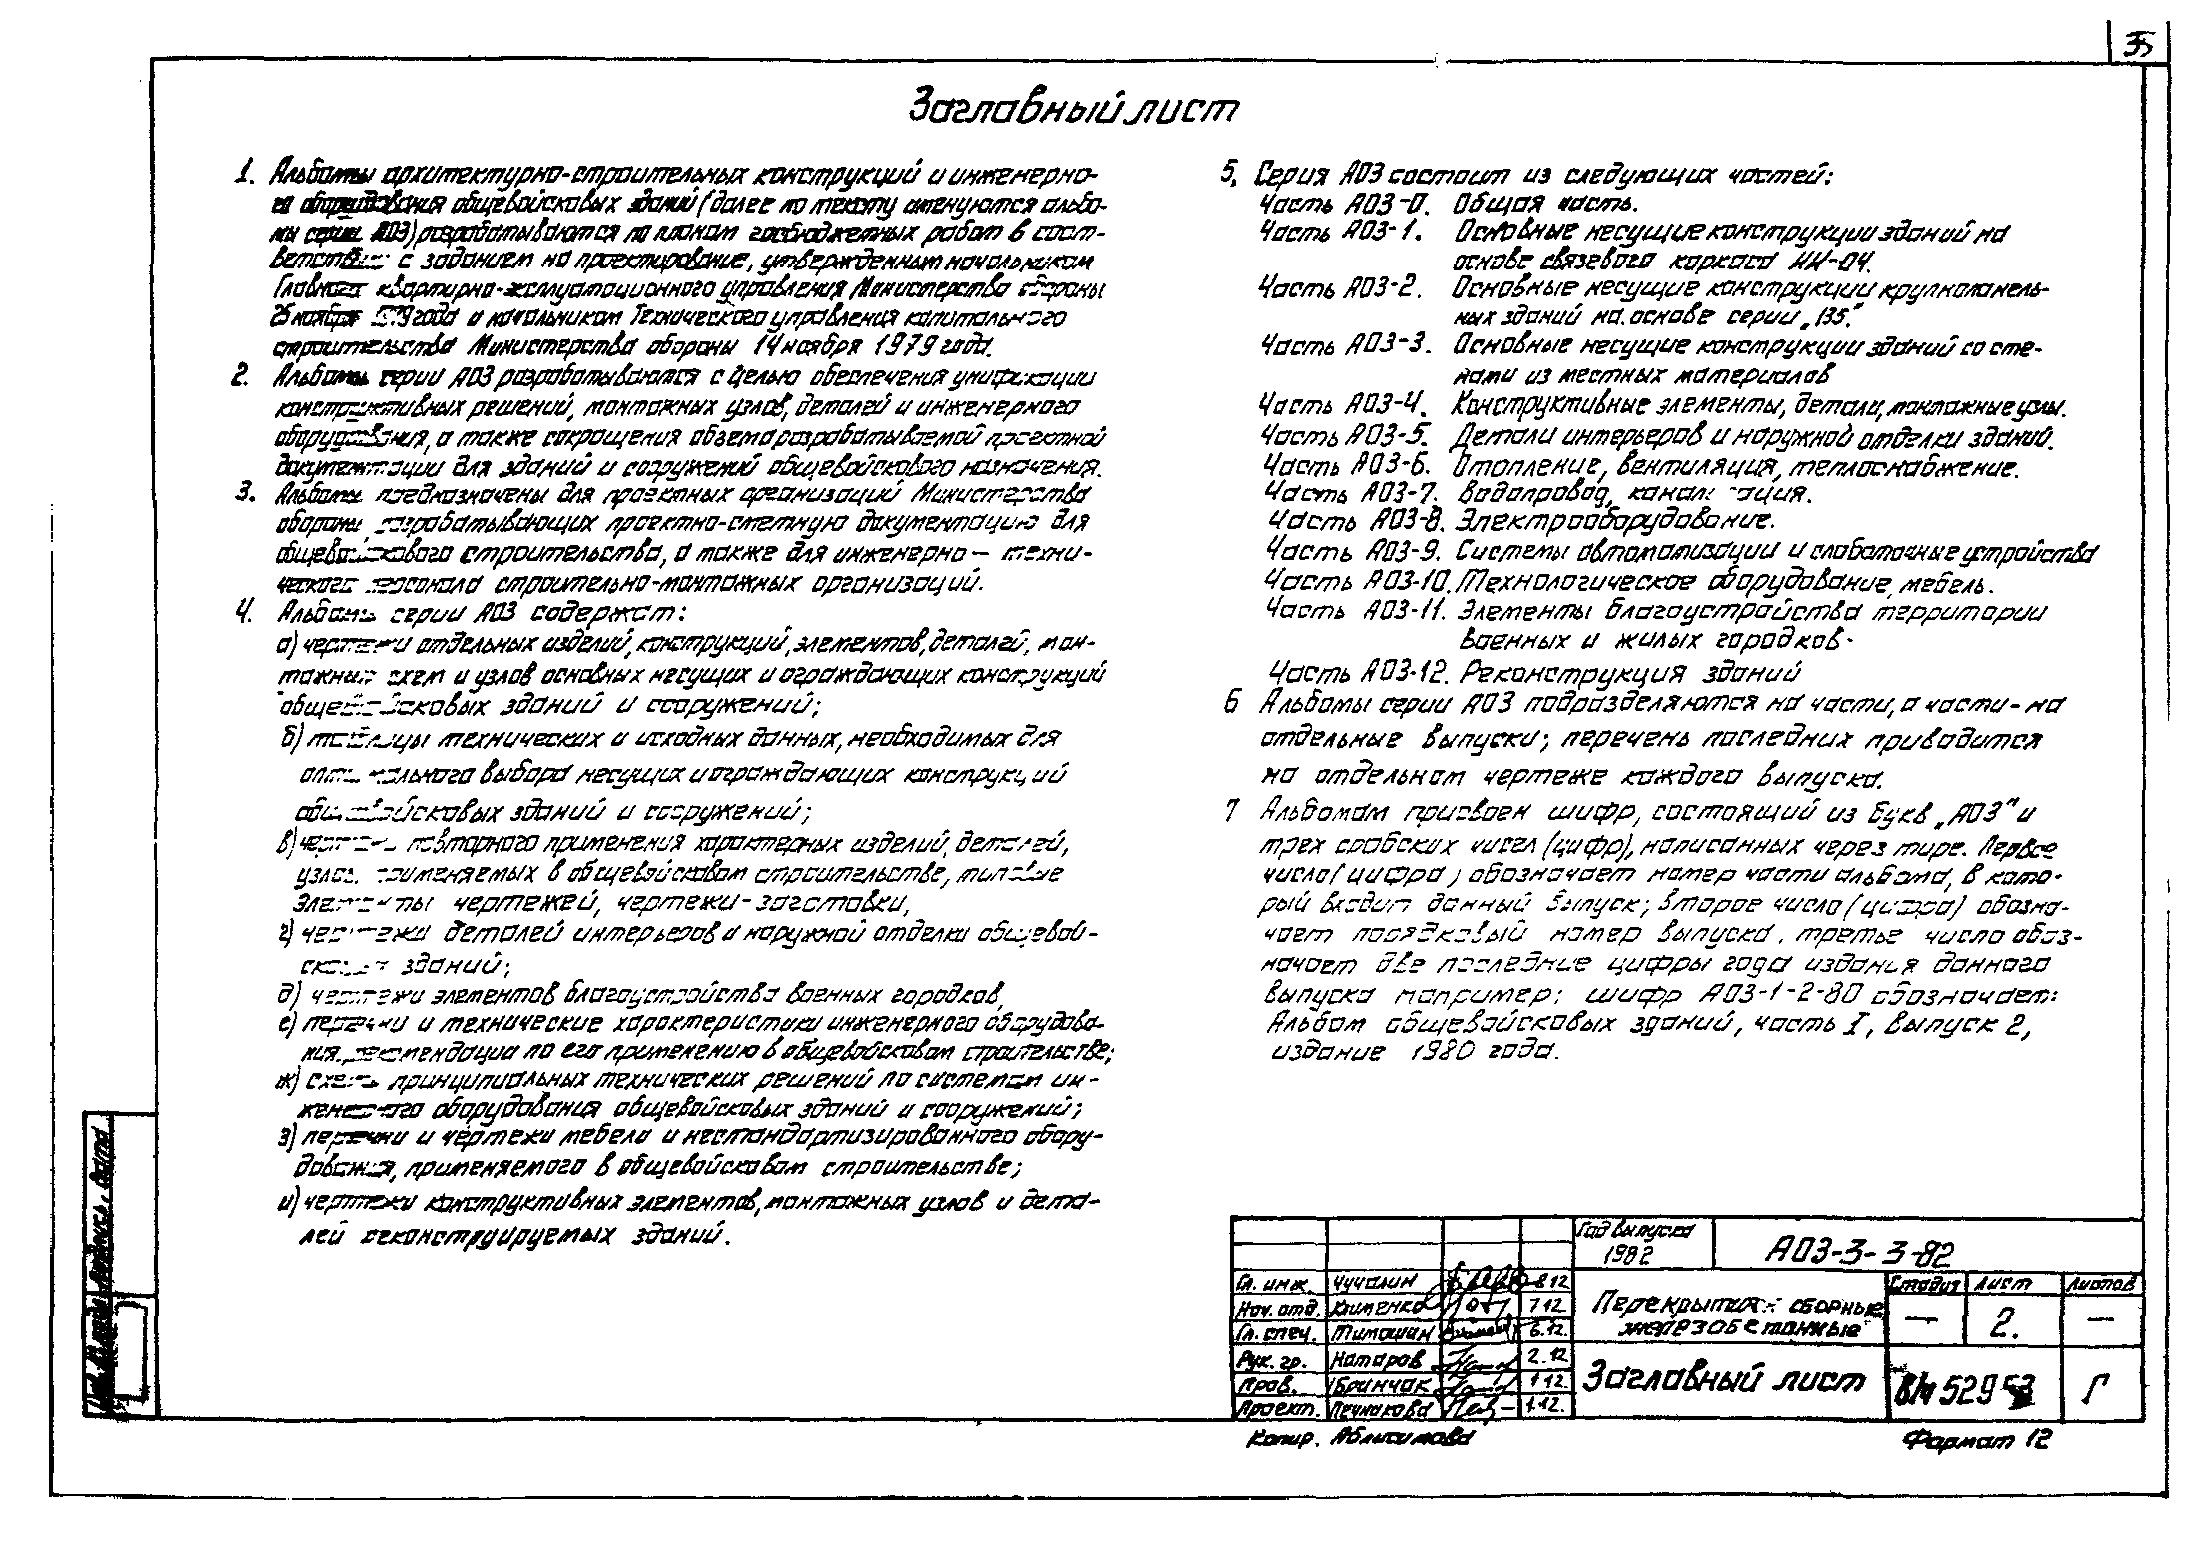 35
Заглавный лист
1. Альбомы архитектурно-строительных конструкций и инженерно-
го оборудования общевойсковых зданий (далее по тексту именуются альбо-
мы серии А03) разрабатываются по планам госбюджетных работ в соот-
ветствии с заданием на проектирование, утвержденным начальником
Главного квартирно-эксплуатационного управления Министерства обороны
ноября 1979 года и начальником Технического управления капитального
строительства Министерства обороны 14 ноября 1979 года.
2. Альбомы серии А03 разрабатываются с целью обеспечения унификации
конструктивных решений, монтажных узлов, деталей и инженерного
оборудования, а также сокращения объема разрабатываемой проектной
документации для зданий и сооружений общевойскового назначения.
3. Альбомы предназначены для проектных организаций Министерства
обороны разрабатывающих проектно-сметную документацию для
общевойскового строительства, а также для инженерно – техни-
ческого персонала строительно-монтажных организаций.
4. Альбомы серии А03 содержат:
а) чертежи отдельных изделий, конструкций, элементов, деталей, мон-
тажных схем и узлов основных несущих и ограждающих конструкций
общевойсковых зданий и сооружений;
б) таблицы технических и исходных данных, необходимых для
оптимального выбора несущих и ограждающих конструкций
общевойсковых зданий и сооружений;
в) чертежи повторного применения характерных изделий, деталей,
узлов, применяемых в общевойсковом строительстве, типовые
элементы чертежей, чертежи-заготовки,
г) чертежи деталей интерьеров и наружной отделки общевой-
сковых зданий;
д) чертежи элементов благоустройства военных городков,
е) перечни и технические характеристики инженерного оборудова-
ния, рекомендации по его применению в общевойсковом строительстве;
ж) схемы принципиальных технических решений по системам ин-
женерного оборудования общевойсковых зданий и сооружений;
з) перечни и чертежи мебели и нестандартизированного обору-
дования, применяемого в общевойсковом строительстве;
и) чертежи конструктивных элементов, монтажных узлов и дета-
лей реконструируемых зданий.
5. Серия А03 состоит из следующих частей:
Часть А03-0. Общая часть.
Часть А03-1. Основные несущие конструкции зданий на
основе связевого каркаса ИИ-04.
Часть А03-2. Основные несущие конструкции крупнопанель-
ных зданий на основе серии „135."
Часть А03-3. Основные несущие конструкции зданий со сте-
нами из местных материалов
Часть А03-4. Конструктивные элементы, детали, монтажные узлы.
Часть А03-5. Детали интерьеров и наружной отделки зданий.
Часть А03-6. Отопление, вентиляция, теплоснабжение.
Часть А03-7. Водопровод, канализация.
Часть А03-8. Электрооборудование.
Часть А03-9. Системы автоматизации и слаботочные устройства
Часть А03-10. Технологическое оборудование, мебель.
Часть А03-11. Элементы благоустройства территории
военных и жилых городков.
Часть А03-12. Реконструкция зданий
6 Альбомы серии А03 подразделяются на части, а части – на
отдельные выпуски; перечень последних приводится
на отдельном чертеже каждого выпуска.
7 Альбомам присвоен шифр, состоящий из букв „А03" и
трех арабских чисел (цифр), написанных через тире. Первое
число (цифра) обозначает номер части альбома, в кото-
рый входит данный выпуск; второе число (цифра) обозна-
чает порядковый номер выпуска, третье число обоз-
начает две последние цифры года издания данного
выпуска например: шифр А03-1-2-80 обозначает:
Альбом общевойсковых зданий, часть I, выпуск 2,
издание 1980 года.
Год выпуска
1982
А03-3-3-82
Гл. инж. Чучалин 8.12
Нач. отд. Клименко 7.12
Гл. спец. Тимошин 6.12.
Рук. гр. Натаров 2.12
Пров. Бринчак 1.12.
Проект. Печнакова 1.12.
Перекрытия сборные
железобетонные
Стадия Лист Листов
— 2. —
Заглавный лист
5295
Г
Копир. Аблисимова
Формат 12